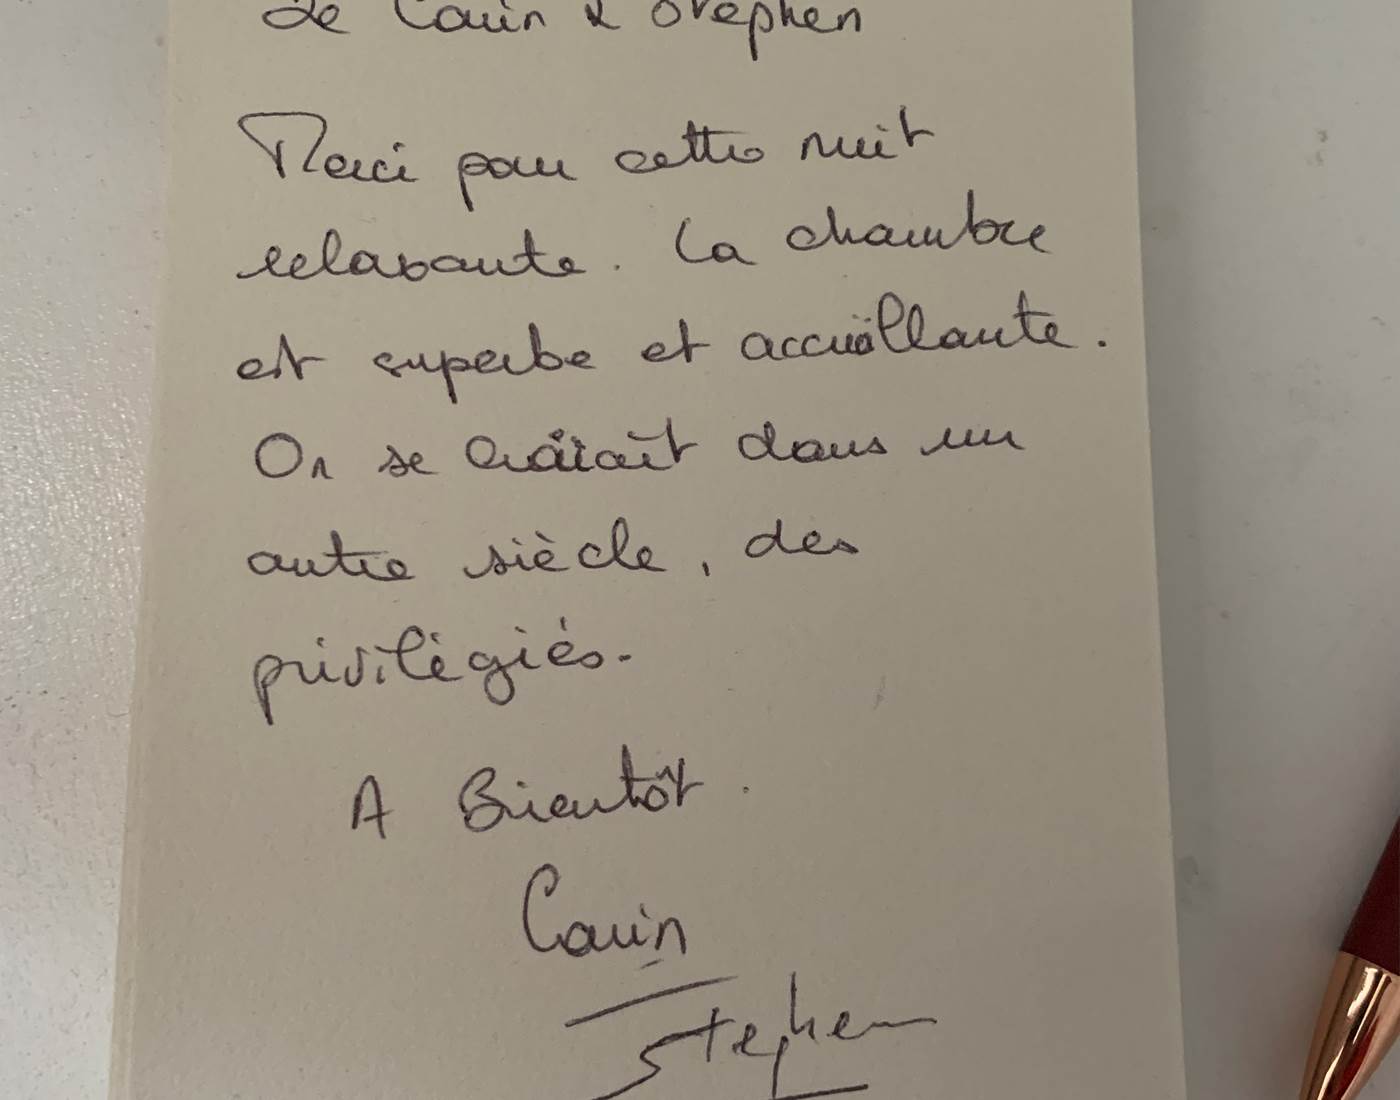 de Carin & Stephen
Merci pour cette nuit
relaxante. La chambre
est superbe et accueillante.
On se croirait dans un
autre siècle, des
privilégiés.
A Bientôt.
Carin
Stephen